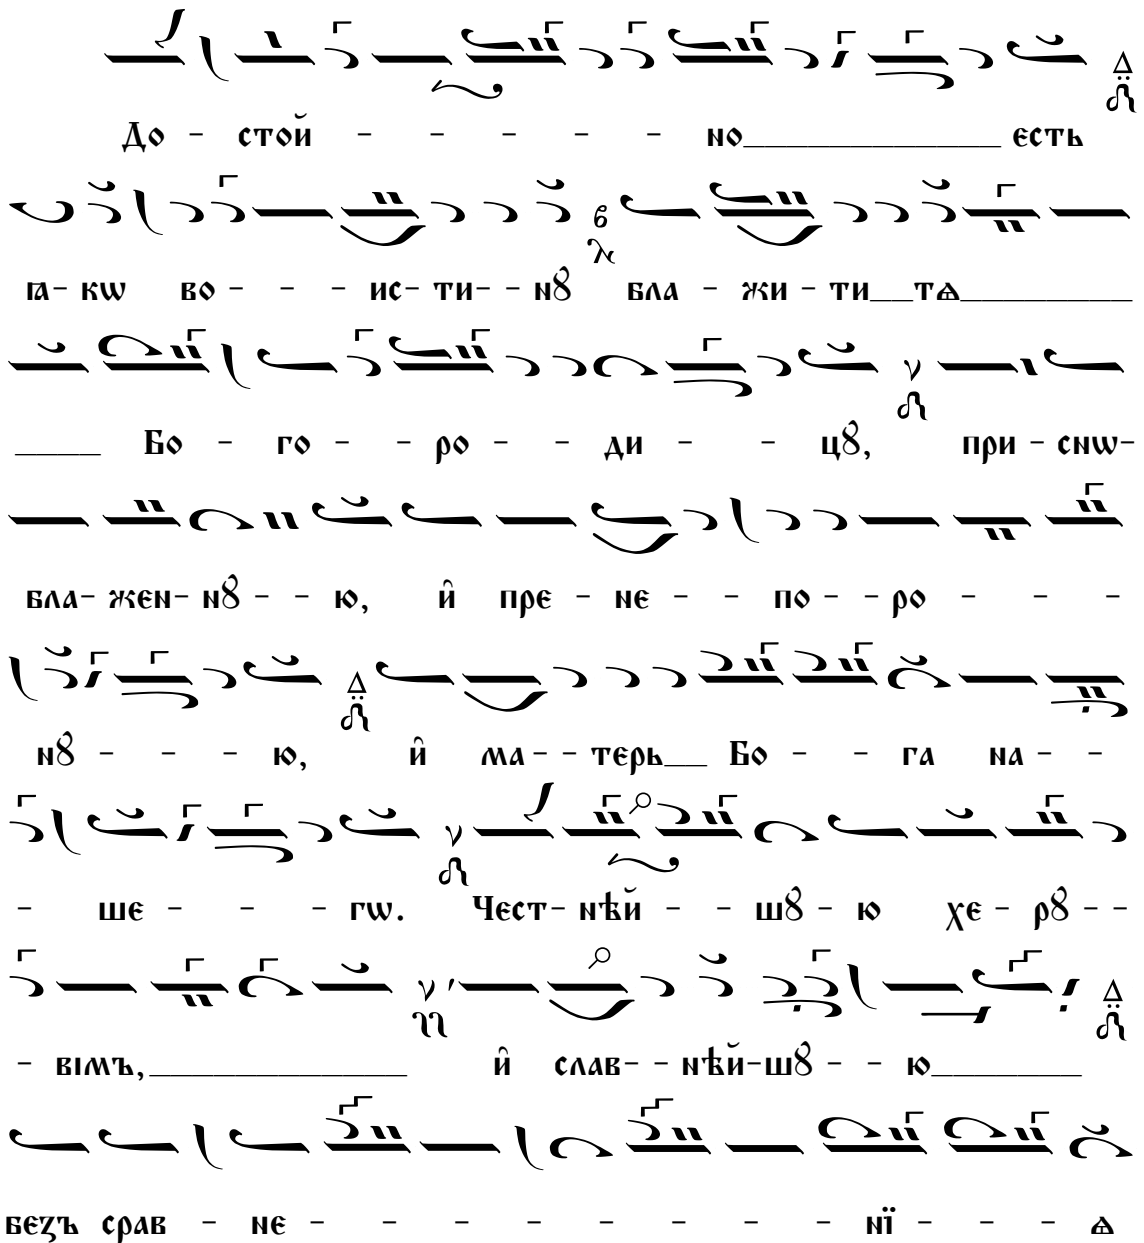 До - стой - - - - - но____________ есть
ꙗ- кѡ во - - - ис- ти- - нꙋ бла - жи - ти__тѧ________
____ Бо - го - - ро - - ди - - цꙋ, при - снѡ-
бла- жен- нꙋ - - ю, и̑ пре - не - - по - - ро - - -
нꙋ - - - ю, и̑ ма - - терь__ Бо - - га на - -
- ше - - - гѡ. Чест- нѣй - - шꙋ - ю хе - рꙋ - -
- вімъ,____________ и̑ слав- - нѣй-шꙋ - - ю_______
беꙁъ срав - не - - - - - - - - нї - - - ѧ